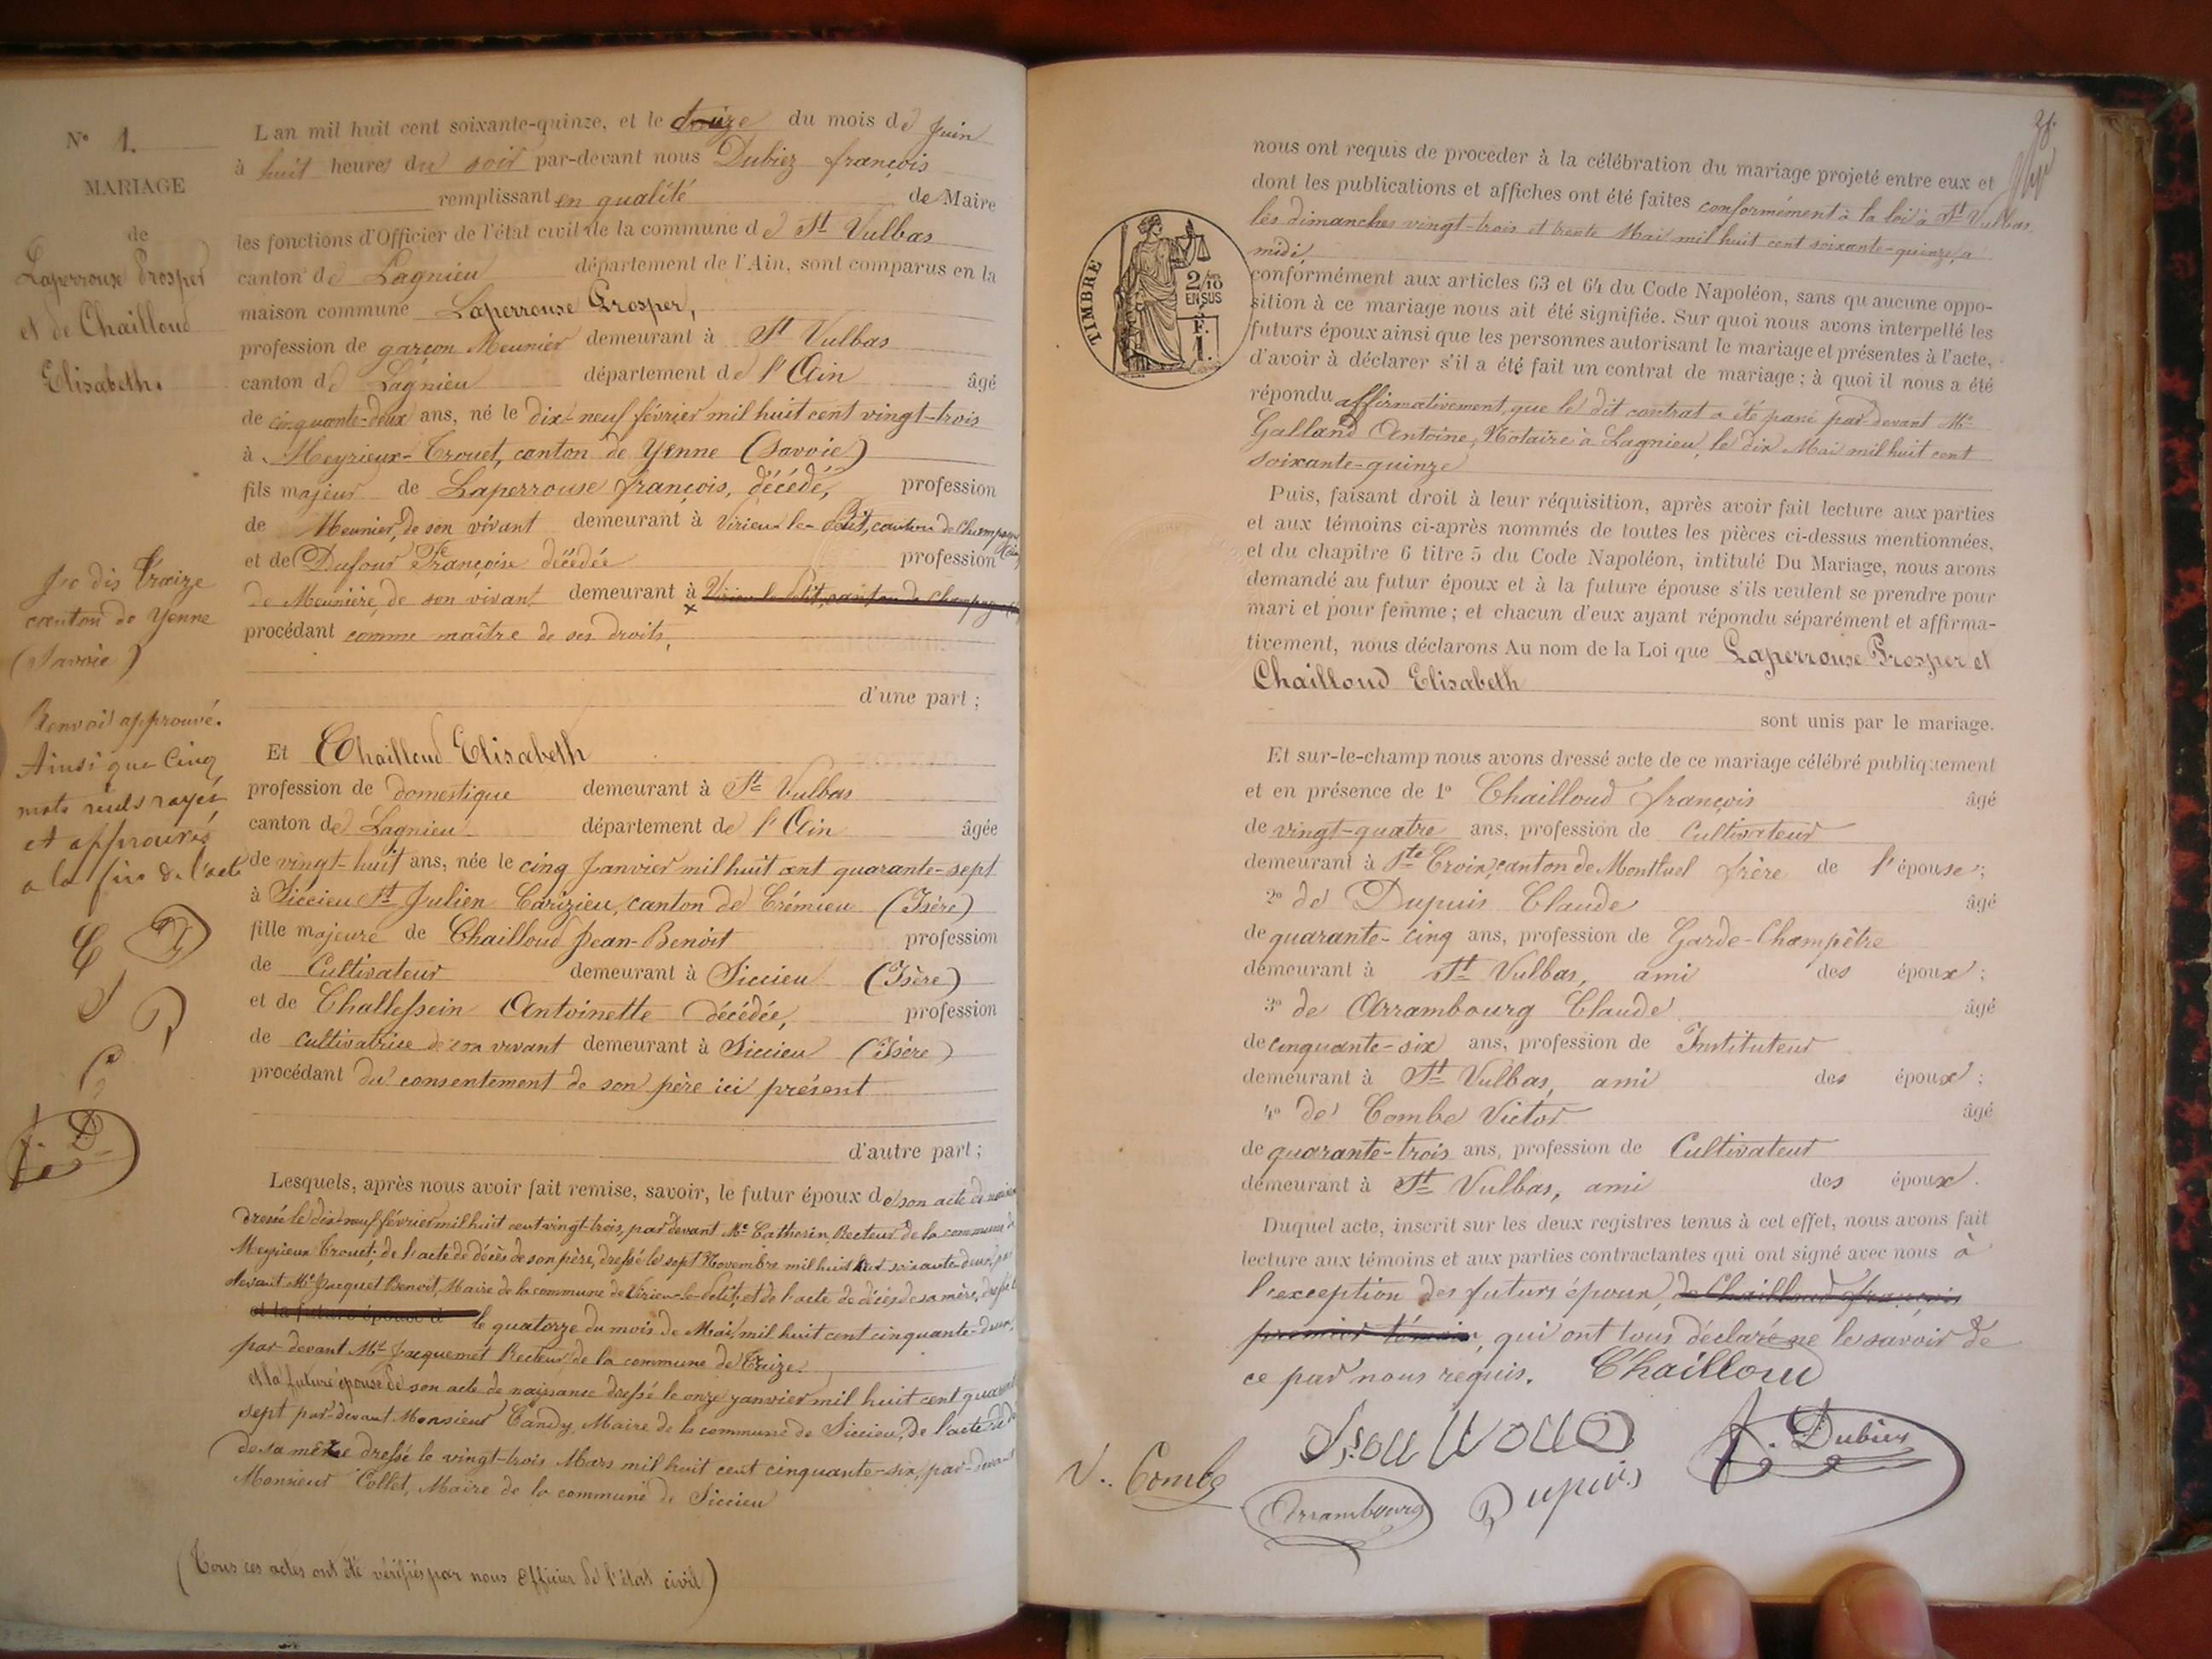 N° 1.
MARIAGE
de
Laperrouse Prosper
et de Chailloud
Elisabeth.
Je dis Traize
canton de Yenne
(Savoie)
Renvoi approuvé.
Ainsi que Cinq
mots nuls rayés
et approuvés
a la fin de l'acte
L an mil huit cent soixante-quinze, et le du mois de Juin
à huit heures du soir par-devant nous Dubiez françois
remplissant en qualité de Maire
les fonctions d'Officier de l'état civil de la commune de St Vulbas
canton de Lagnieu département de l'Ain, sont comparus en la
maison commune Laperrouse Prosper,
profession de garçon Meunier demeurant à St Vulbas
canton de Lagnieu département de l'Ain âgé
de cinquante-deux ans, né le dix-neuf février mil huit cent vingt-trois
à Meyrieux-Trouet, canton de Yenne (Savoie)
fils majeur de Laperrouse françois, décédé, profession
de Meunier, de son vivant demeurant à Virieu-le-Petit, canton de Champagne
et de Dufour Françoise décédée profession
de Meunière, de son vivant demeurant à Virieu le Petit, canton de Champagne
procédant comme maître de ses droits,
d'une part ;
Et Chailloud Elisabeth
profession de domestique demeurant à St Vulbas
canton de Lagnieu département de l'Ain âgée
de vingt-huit ans, née le cinq Janvier mil huit cent quarante-sept
à Siccieu St Julien Carizieu, canton de Crémieu (Isère)
fille majeure de Chailloud Jean-Benoît profession
de Cultivateur demeurant à Siccieu (Isère)
et de Challessein Antoinette décédée, profession
de cultivatrice de son vivant demeurant à Siccieu (Isère)
procédant du consentement de son père ici présent
d'autre part ;
Lesquels, après nous avoir fait remise, savoir, le futur époux de son acte de
dressé le dix-neuf février mil huit cent vingt-trois, par devant Mr Catherin, Recteur de la commune de
Meyrieux Trouet; de l'acte de décès de son père, dressé le sept Novembre mil huit cent soixante-deux, par
devant Mr Jacquet Benoit, Maire de la commune de Virieu-le-Petit, et de l'acte de décès de sa mère, dressé
et la future épouse d le quatorze du mois de Mai mil huit cent cinquante-deux,
par devant Mr Jacquemet Recteur de la commune de Traize.
et la future épouse de son acte de naissance dressé le onze janvier mil huit cent quarante
sept par-devant Monsieur Candy, Maire de la commune de Siccieu, de l'acte de
de sa mère dressé le vingt-trois Mars mil huit cent cinquante-six, par-devant
Monsieur Collet, Maire de la commune de Siccieu
(Tous ces actes ont été vérifiés par nous Officier de l'état civil)
nous ont requis de proceder à la célébration du mariage projeté entre eux et
dont les publications et affiches ont été faites conformément à la loi à St Vulbas
les dimanches vingt-trois et trente Mai mil huit cent soixante-quinze, a
midi,
conformément aux articles 63 et 64 du Code Napoléon, sans qu aucune oppo-
sition à ce mariage nous ait été signifiée. Sur quoi nous avons interpellé les
futurs époux ainsi que les personnes autorisant le mariage et présentes à l'acte,
d'avoir à déclarer s'il a été fait un contrat de mariage ; à quoi il nous a été
répondu affirmativement, que le dit contrat a été passé par-devant Me
Galland Antoine, Notaire à Lagnieu, le dix Mai mil huit cent
soixante-quinze
TIMBRE
2/10
EN SUS
F.
1.
Puis, faisant droit à leur réquisition, après avoir fait lecture aux parties
et aux témoins ci-après nommés de toutes les pièces ci-dessus mentionnées,
et du chapitre 6 titre 5 du Code Napoléon, intitulé Du Mariage, nous avons
demandé au futur époux et à la future épouse s'ils veulent se prendre pour
mari et pour femme ; et chacun d'eux ayant répondu séparément et affirma-
tivement, nous déclarons Au nom de la Loi que Laperrouse Prosper et
Chailloud Elisabeth
sont unis par le mariage.
Et sur-le-champ nous avons dressé acte de ce mariage célébré publiquement
et en présence de 1° Chailloud françois âgé
de vingt-quatre ans, profession de Cultivateur
demeurant à Ste Croix, canton de Montluel frère de l'épouse ;
2° de Dupuis Claude âgé
de quarante-cinq ans, profession de Garde-Champêtre
demeurant à St Vulbas, ami des époux ;
3° de Arrambourg Claude âgé
de cinquante-six ans, profession de Instituteur
demeurant à St Vulbas, ami des époux ;
4° de Combe Victor âgé
de quarante-trois ans, profession de Cultivateur
demeurant à St Vulbas, ami des époux.
Duquel acte, inscrit sur les deux registres tenus à cet effet, nous avons fait
lecture aux témoins et aux parties contractantes qui ont signé avec nous à
l'exception des futurs époux, de Chailloud françois
premier témoin, qui ont tous déclaré ne le savoir de
ce par nous requis. Chailloud
V. Combe Arrambourg Dupuis F. Dubiez